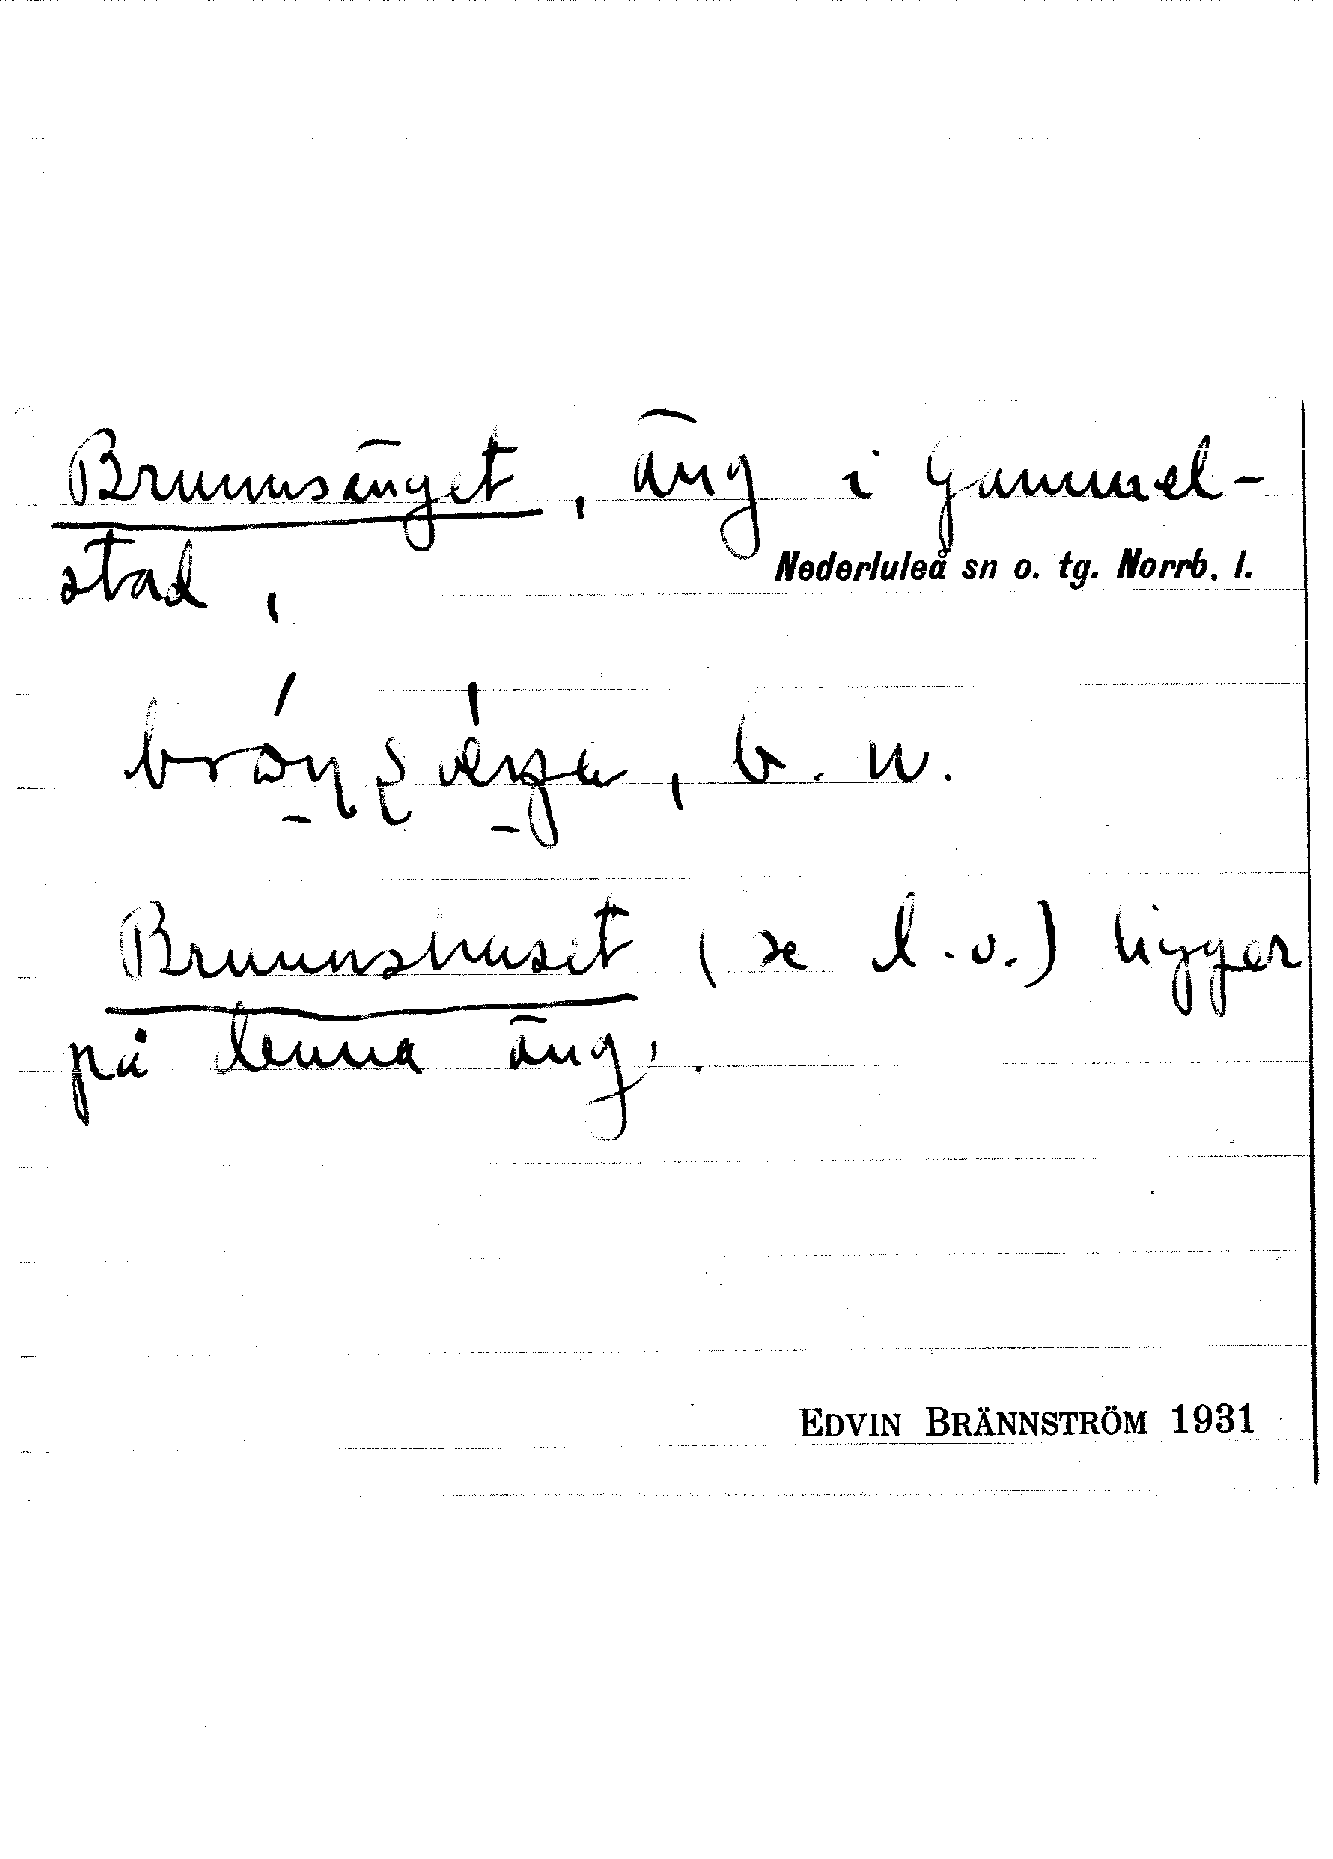 Brunnsänget, äng i Gammel-
Nederluleå sn o. tg. Norrb. l.
stad,
b. n.
Brunnshuset (se d.o.) ligger
på denna äng.
EDVIN BRÄNNSTRÖM 1931